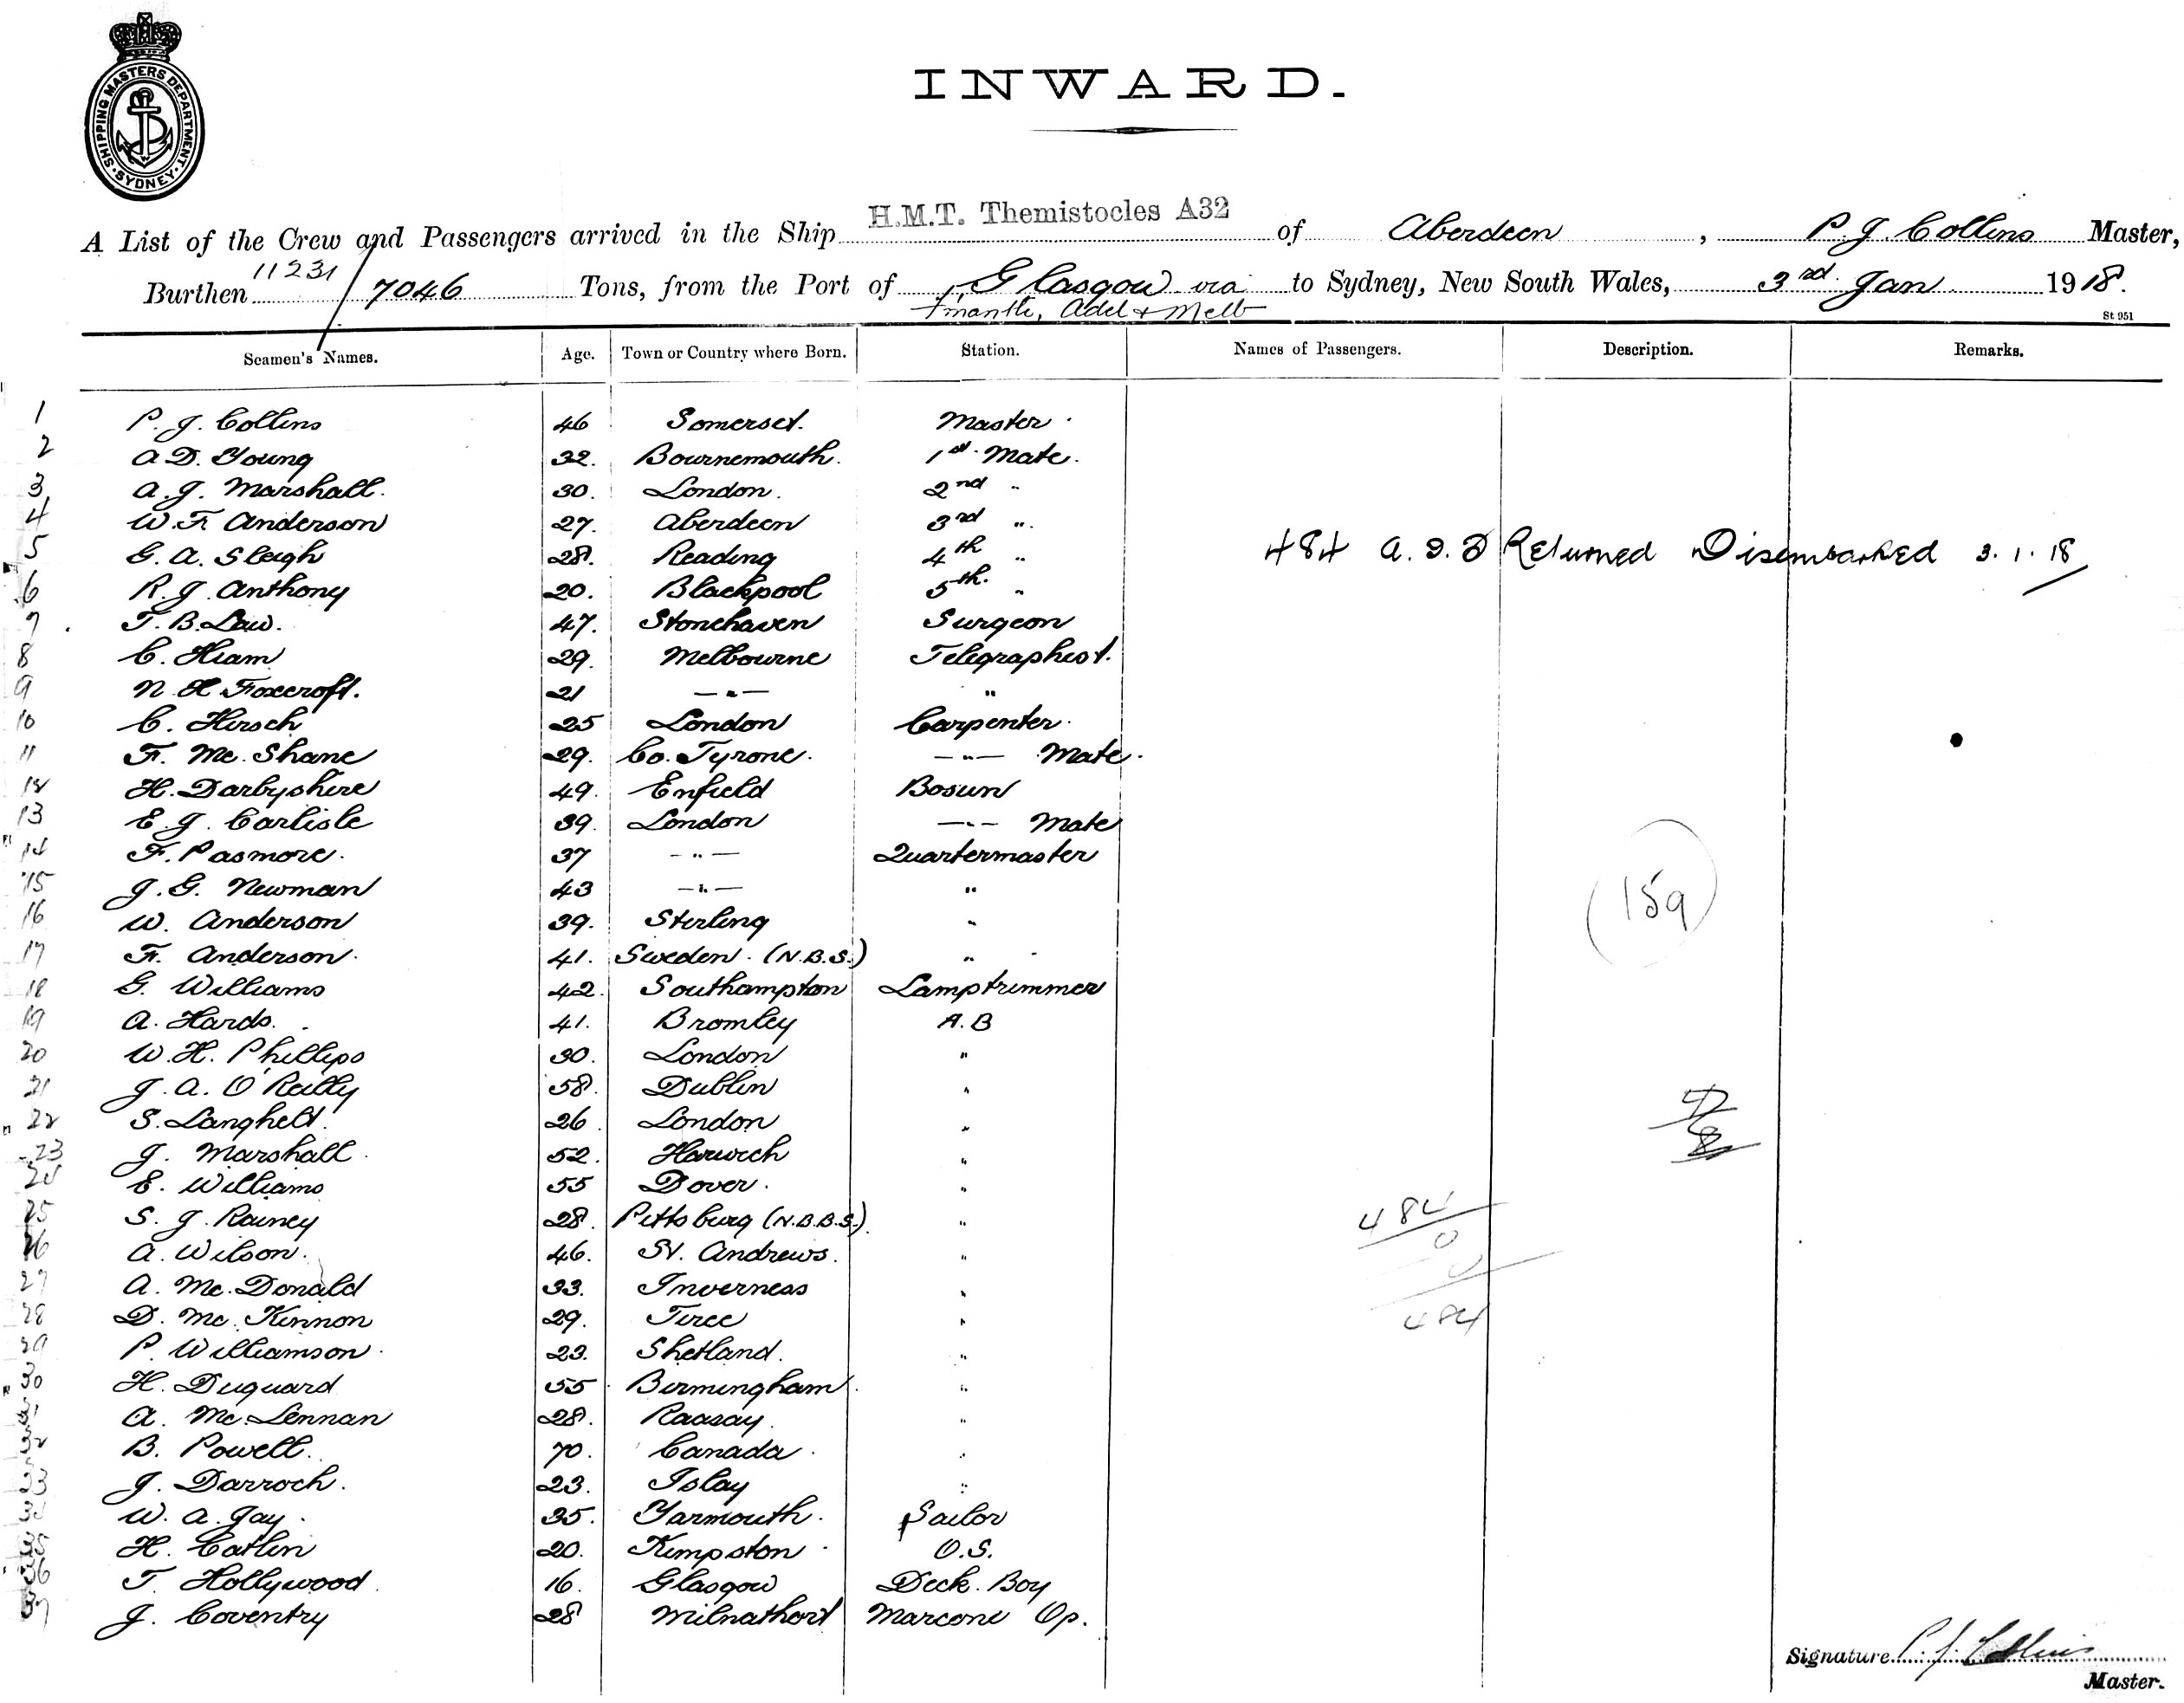 SHIPPING MASTERS DEPARTMENT
SYDNEY
INWARD.
A List of the Crew and Passengers arrived in the Ship H.M.T. Themistocles A32 of Aberdeen, P. J. Collins Master,
Burthen 11231 / 7046 Tons, from the Port of Glasgow via to Sydney, New South Wales, 3rd Jan 1918.
F'mantle, Adel & Melb
St 951
Seamen's Names. Age. Town or Country where Born. Station. Names of Passengers. Description. Remarks.
1 P. J. Collins 46 Somerset. Master.
2 A D. Young 32. Bournemouth. 1st Mate.
3 A. J. Marshall. 30. London. 2nd "
4 W. F. Anderson 27. Aberdeen 3rd "
5 G. A. Sleigh 28. Reading 4th "
484 A. I. F Returned Disembarked 3.1.18
6 R. J. Anthony 20. Blackpool 5th. "
7 T. B. Law. 47. Stonehaven Surgeon
8 C. Hiam 29. Melbourne Telegraphist.
9 N. H Foxcroft. 21 —"— "
10 C. Hirsch 25 London Carpenter.
11 F. Mc. Shane 29. Co. Tyrone. —"— Mate.
12 H. Darbyshire 49. Enfield Bosun
13 E. J. Carlisle 39. London —"— Mate
14 F. Pasmore. 37 —"— Quartermaster
15 J. G. Newman 43 —"— "
16 W. Anderson 39. Stirling "
(159)
17 F. Anderson. 41. Sweden. (N.B.S.) "
18 G. Williams 42. Southampton Lamptrimmer
19 A. Hards. 41. Bromley A.B
20 W. H. Phillips 30. London "
21 J. A. O'Reilly 58. Dublin "
22 S. Langheld. 26. London "
23 J. Marshall. 52. Harwich "
24 E. Williams 55 Dover. "
25 S. J. Rainey 28. Pittsburg (N.B.B.S.). "
484
0
26 A. Wilson. 46. St. Andrews. "
0
27 A. Mc. Donald 33. Inverness "
28 D. Mc. Kinnon 29. Tiree "
484
29 P. Williamson. 23. Shetland. "
30 H. Duquard 55 Birmingham. "
31 A. Mc. Lennan 28. Raasay. "
32 B. Powell. 70. Canada. "
33 J. Darroch. 23. Islay "
34 W. A. Jay. 35. Yarmouth. Sailor
35 H. Catlin 20. Kempston O.S.
36 T. Hollywood. 16. Glasgow Deck. Boy
37 J. Coventry 28 Milnathort Marconi Op.
Signature P. J. Collins
Master.